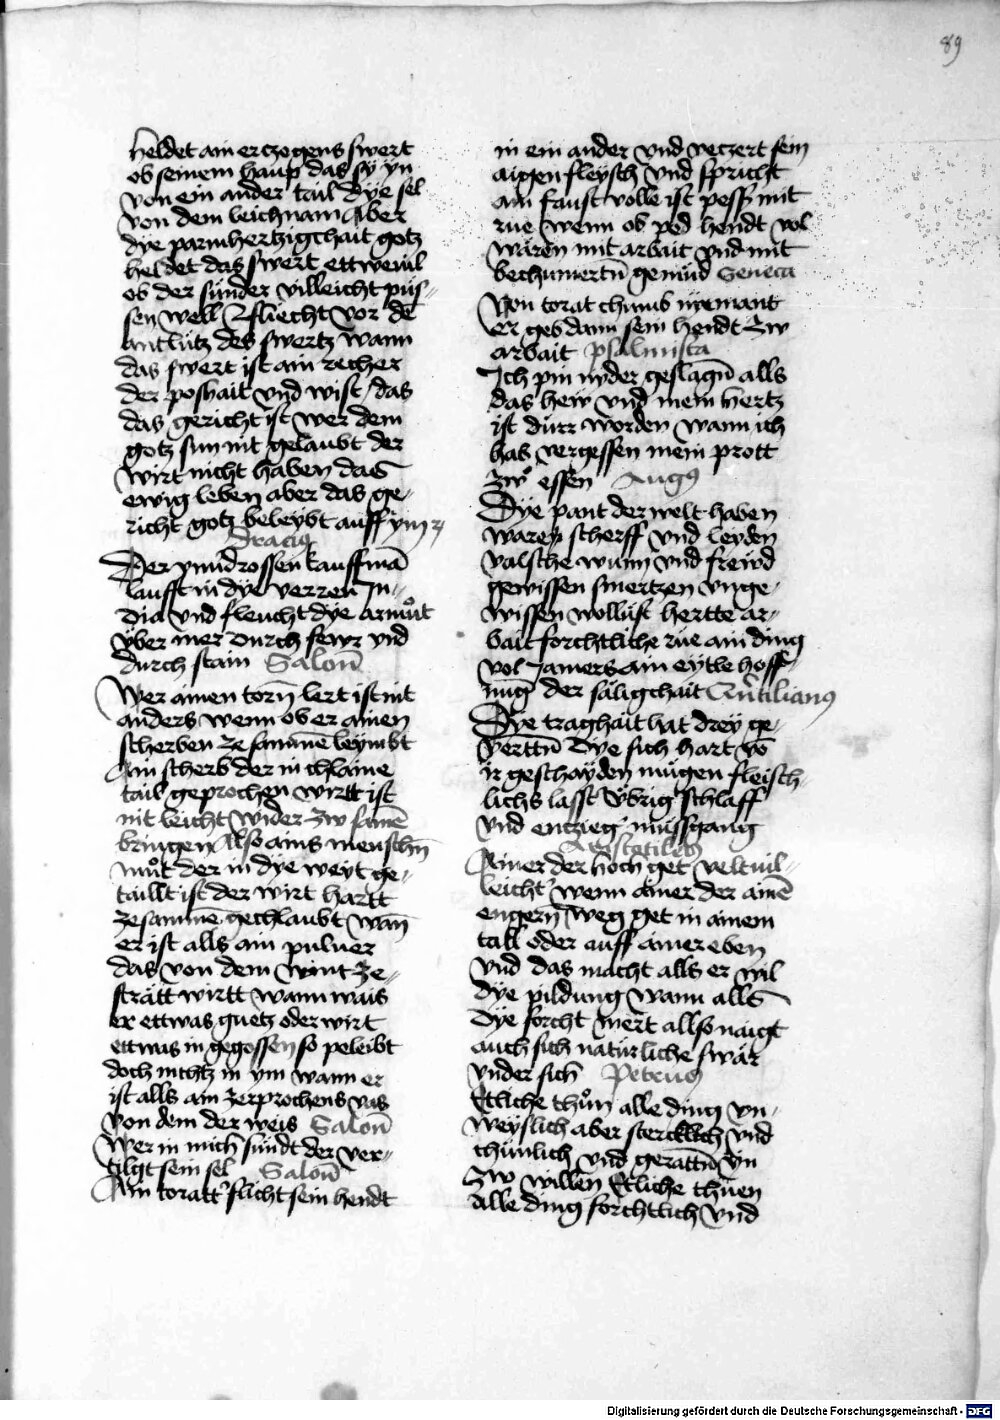 89
heldet ain erczogens swert
ob seinem haup das sy yn
von ein ander tail dye sel
von dem leichnam Aber
dye parmhertzigchait gotz
heldet das swert ettweuil
ob der sunder villeicht püs-
sen well & fliecht vor dē
antlütz des swertz wann
das swert ist ain recher
der poshait vnd wist das
das gericht ist wer dem
gotz sun nit gelaubt der
wirt nicht haben das
ewig leben aber das ge-
richt gotz beleybt auff ym
Oracius
Der vnudrossen kauffmā
laufft in dye verren In-
dia vnd fleucht dye armůt
vber mer durch fewr vnd
durch stain Salon̄
Wer ainen torn̄ lert ist nit
anders wenn ob er ainen
scherben ze samme leymbt
Ain scherb der in chlaine
tail geprochen wirtt ist
nit leicht wider zw samē
bringen Also ains menschn̄
můt der in dye weyt ge-
taillt ist der wirt hartt
zesamme gechlaubt wan̄
er ist alls ain puluer
das von dem wint ze-
strätt wirtt wann wais
er ettwas guetz oder wirt
ettwas in gegossen so peleibt
doch nichtz in ym wann er
ist alls ain zerprochens vas
von dem der weis Salon̄
Wer in mich sündt der ver-
tilgt sein sel Salon̄
Ain toratt' flicht sein hendt
in ein ander vnd verzert sein
aigen fleysch vnd spricht
ain faust volle ist pess mit
rue wenn ob ped hendt vol
wären mit arbait vnd mit
bechumertn̄ gemüd Seneca
Von torat chumb nyemant
er geb dann sein hendt zw
arbait psalmista
Ich pin nyder geslagn̄ alls
das hew vnd mein hertz
ist dürr worden wann ich
hab vergessen mein prott
zw essen Augꝰ
Dye pant der welt haben
waren scherff vnd leyden
valsche wunn vnd frewd
gewissen smertzen vnge-
wissen wollust hertte ar-
bait forchtliche rue ain ding
vol Jamers ain eytle hoff-
nuḡ der säligchait Qūtilianꝰ
Dye traghait hat drey ge-
verttn̄ dye sich hart vō
ir geschayden mügen fleisch-
lichs lasst vbrig schlaff
vnd entzieg müssgang
Aristotiles
Ainer der hoch get veltuil-
leicht wenn ainer der ainē
engern̄ weg get in ainem
tall oder auff ainer eben
vnd das macht alls er wil
dye pildung wann alls
dye forcht mert allso naigt
auch sich natürliche swär
vnder sich Petrus
Etliche thůn alle ding vn-
weyslich aber stercklich vnd
chünlich vnd gerattn̄ yn
zw willen Etliche thuen
alle ding forchtlich vnd
Digitalisierung gefördert durch die Deutsche Forschungsgemeinschaft - DFG